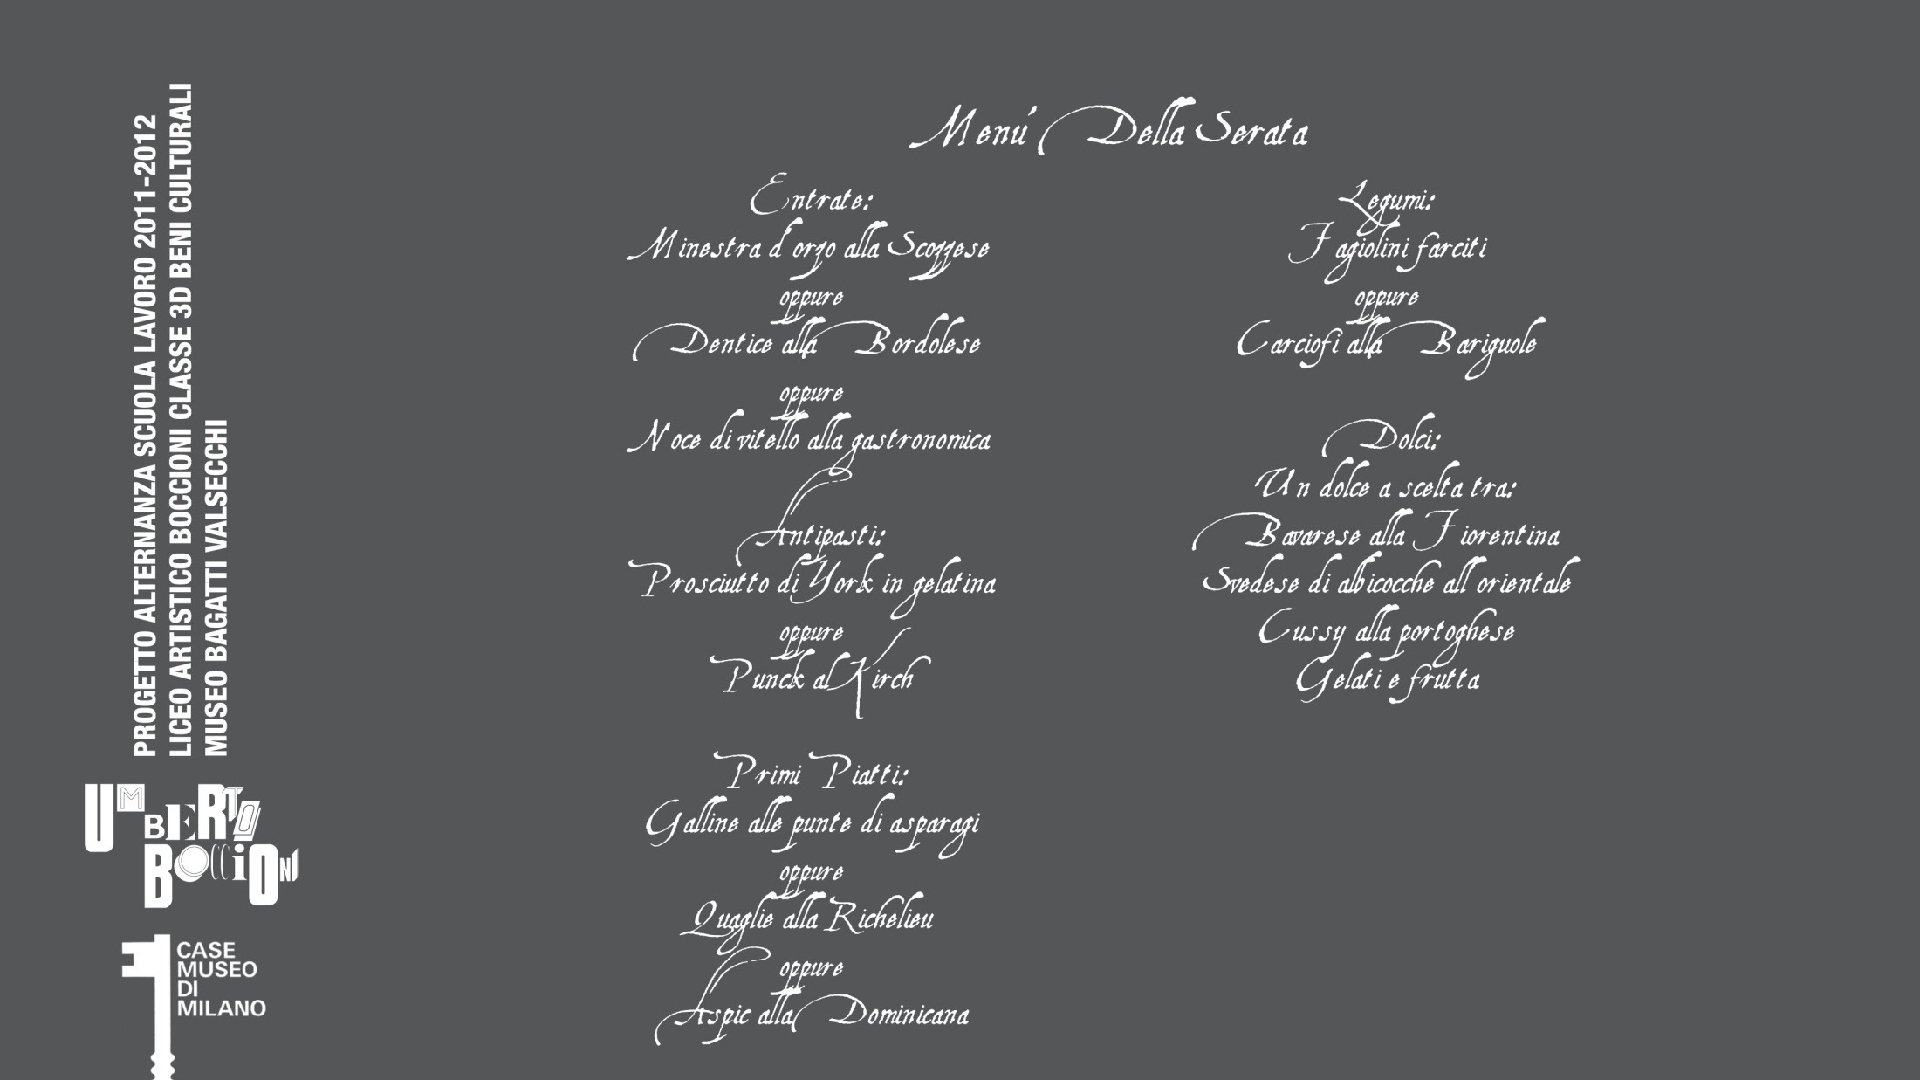 PROGETTO ALTERNANZA SCUOLA LAVORO 2011-2012
LICEO ARTISTICO BOCCIONI CLASSE 3D BENI CULTURALI
MUSEO BAGATTI VALSECCHI
UMBERTO
BOCCIONI
CASE
MUSEO
DI
MILANO
Menú Della Serata
Entrate:
Minestra d orzo alla Scozzese
oppure
Dentice alla Bordolese
oppure
Noce di vitello alla gastronomica
Antipasti:
Prosciutto di York in gelatina
oppure
Punck al Kirch
Primi Piatti:
Galline alle punte di asparagi
oppure
Quaglie alla Richelieu
oppure
Aspic alla Dominicana
Legumi:
Fagiolini farciti
oppure
Carciofi alla Bariguole
Dolci:
Un dolce a scelta tra:
Bavarese alla Fiorentina
Svedese di albicocche all orientale
Cussy alla portoghese
Gelati e frutta